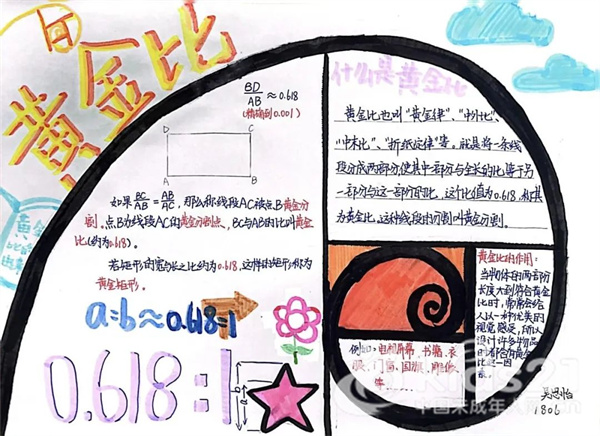 黄金比
BD/AB≈0.618
(精确到0.001)
D C
A B
如果BC/AB=AB/AC,那么称线段AC被点B黄金分
割,点B为线段AC的黄金分割点,BC与AB的比叫黄金
比(约为0.618)。
若矩形的宽与长之比约为0.618,这样的矩形称为
黄金矩形。
a=b≈0.618=1
0.618:1
a
b
什么是黄金比
黄金比也叫“黄金律”、“中外比”、
“中末比”、“折纸旋律”等。就是将一条线
段分成两部分,使其中一部分与全长的比等于另
一部分与这一部分的比,这个比值为0.618,称其
为黄金比,这种线段的分割叫黄金分割。
黄金比的作用:
当物体的两部分
长度大到符合黄金
比时,常常会给
人以一种优美的
视觉感受,所以
设计许多物品
时都会有黄金
比这一因
素。
例如:电视屏幕、书籍、衣
服、门窗、国旗
等。
吴思怡
1806
中国未成年人网